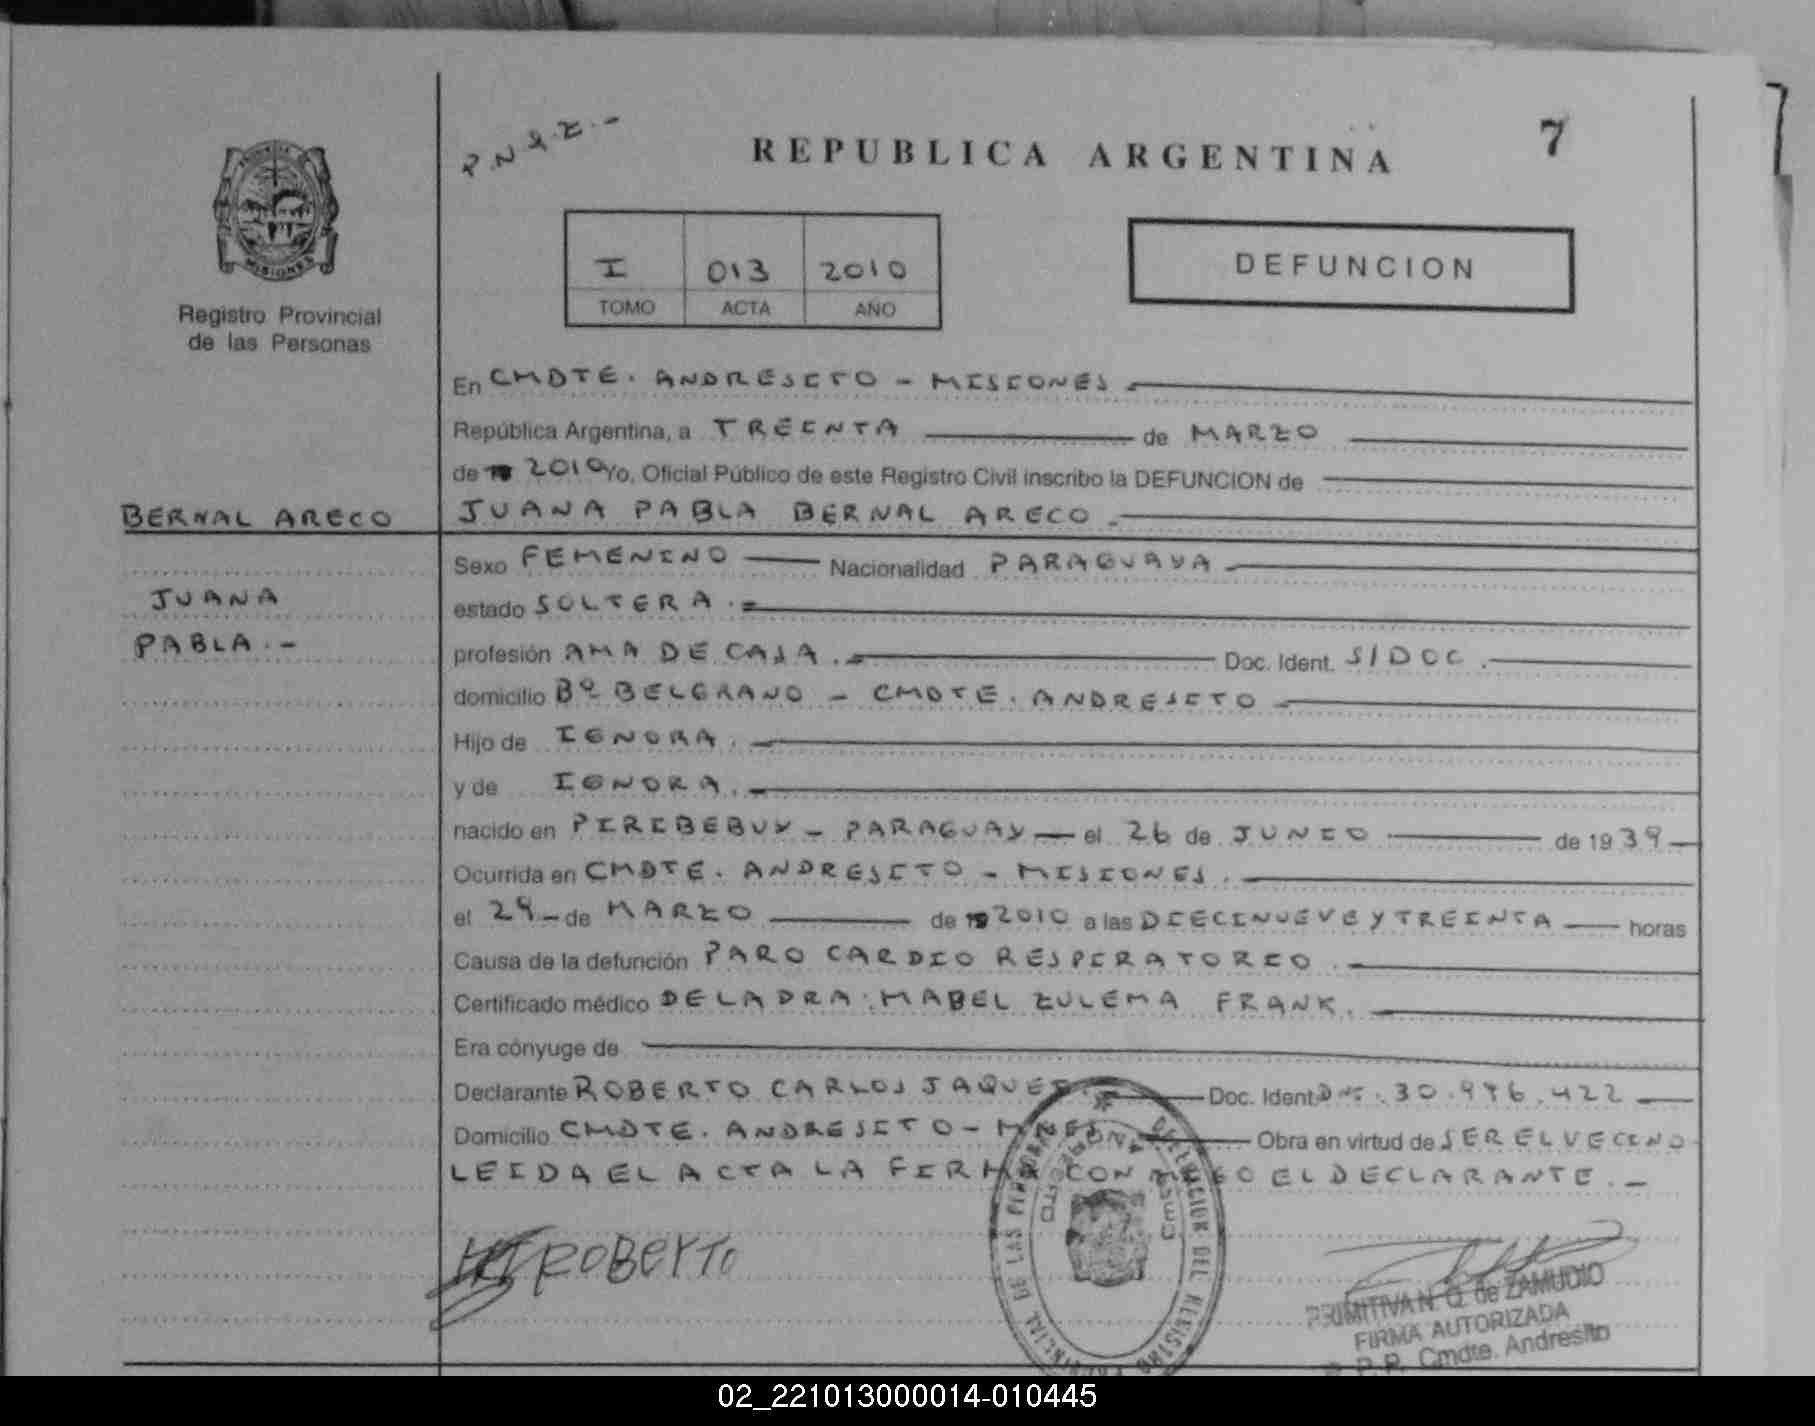 P.N.Q.Z.-
REPUBLICA ARGENTINA
7
MISIONES
Registro Provincial
de las Personas
I 013 2010
TOMO ACTA AÑO
DEFUNCION
En CMDTE. ANDRESITO - MISIONES
República Argentina, a TREINTA de MARZO
de 2010 Yo, Oficial Público de este Registro Civil inscribo la DEFUNCION de
BERNAL ARECO
JUANA PABLA BERNAL ARECO.
Sexo FEMENINO Nacionalidad PARAGUAYA
JUANA
estado SOLTERA.
PABLA.-
profesión AMA DE CASA. Doc. Ident. S/DOC.
domicilio Bº BELGRANO - CMDTE. ANDRESITO
Hijo de IGNORA.
y de IGNORA.
nacido en PIRIBEBUY - PARAGUAY el 26 de JUNIO de 1939
Ocurrida en CMDTE. ANDRESITO - MISIONES.
el 29 de MARZO de 2010 a las DIECINUEVE Y TREINTA horas
Causa de la defunción PARO CARDIO RESPIRATORIO.
Certificado médico DE LA DRA. MABEL ZULEMA FRANK.
Era cónyuge de
Declarante ROBERTO CARLOS JAQUES. Doc. Ident DNI. 30.996.422
Domicilio CMDTE. ANDRESITO - MNES Obra en virtud de SER EL VECINO
LEIDA EL ACTA LA FIRMA CONMIGO EL DECLARANTE.-
ROBERTO
DELEGACION DEL REGISTRO PROVINCIAL DE LAS PERSONAS
PRIMITIVA N. Q. de ZAMUDIO
FIRMA AUTORIZADA
R. P. P. Cmdte. Andresito
02_221013000014-010445